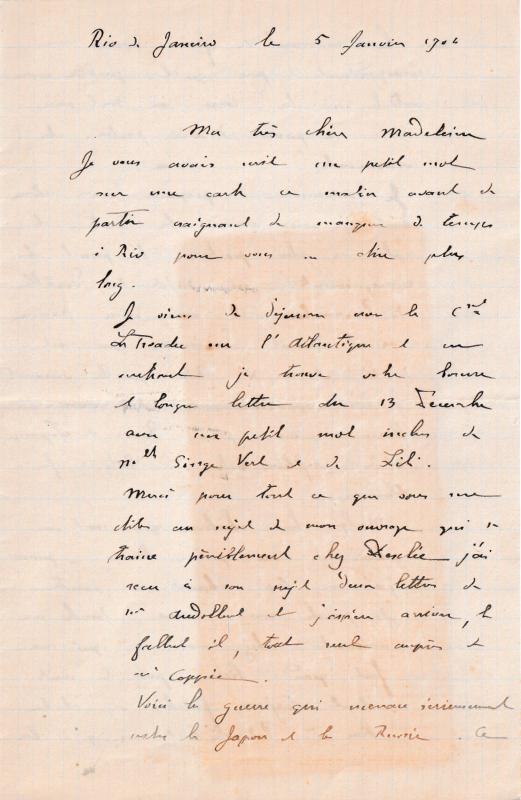 Rio de Janeiro le 5 Janvier 1904
Ma très chère Madeleine
Je vous avais écrit un petit mot
sur une carte ce matin avant de
partir craignant de manquer de temps
à Rio pour vous en dire plus
long.
Je viens de déjeuner avec le
sur l'Atlantique et en
rentrant je trouve votre bonne
et longue lettre du 13 Décembre
avec un petit mot inclus de
Singe Vert et de Lili.
Merci pour tout ce que vous me
dites au sujet de mon ouvrage qui se
traine péniblement chez Desclée j'ai
reçu à son sujet deux lettres de
et j'espère arriver, le
fallut il, tout seul auprès de
Mr Coppée.
Voici la guerre qui menace sérieusement
entre le Japon et la Russie. Ce